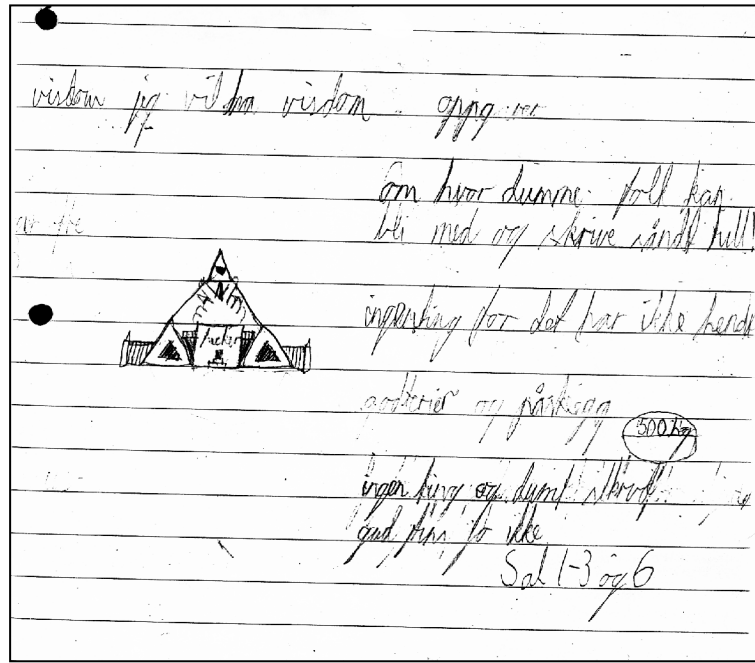 visdom jeg vil ha visdom oppg
Om hvor dumme folk kan
bli med og skrive sånnt tull!
ingenting for det har ikke hendt
godterier og påskegg
500 kg
ingen ting og dumt
gud fins jo ikke
Sal 1-3 og 6